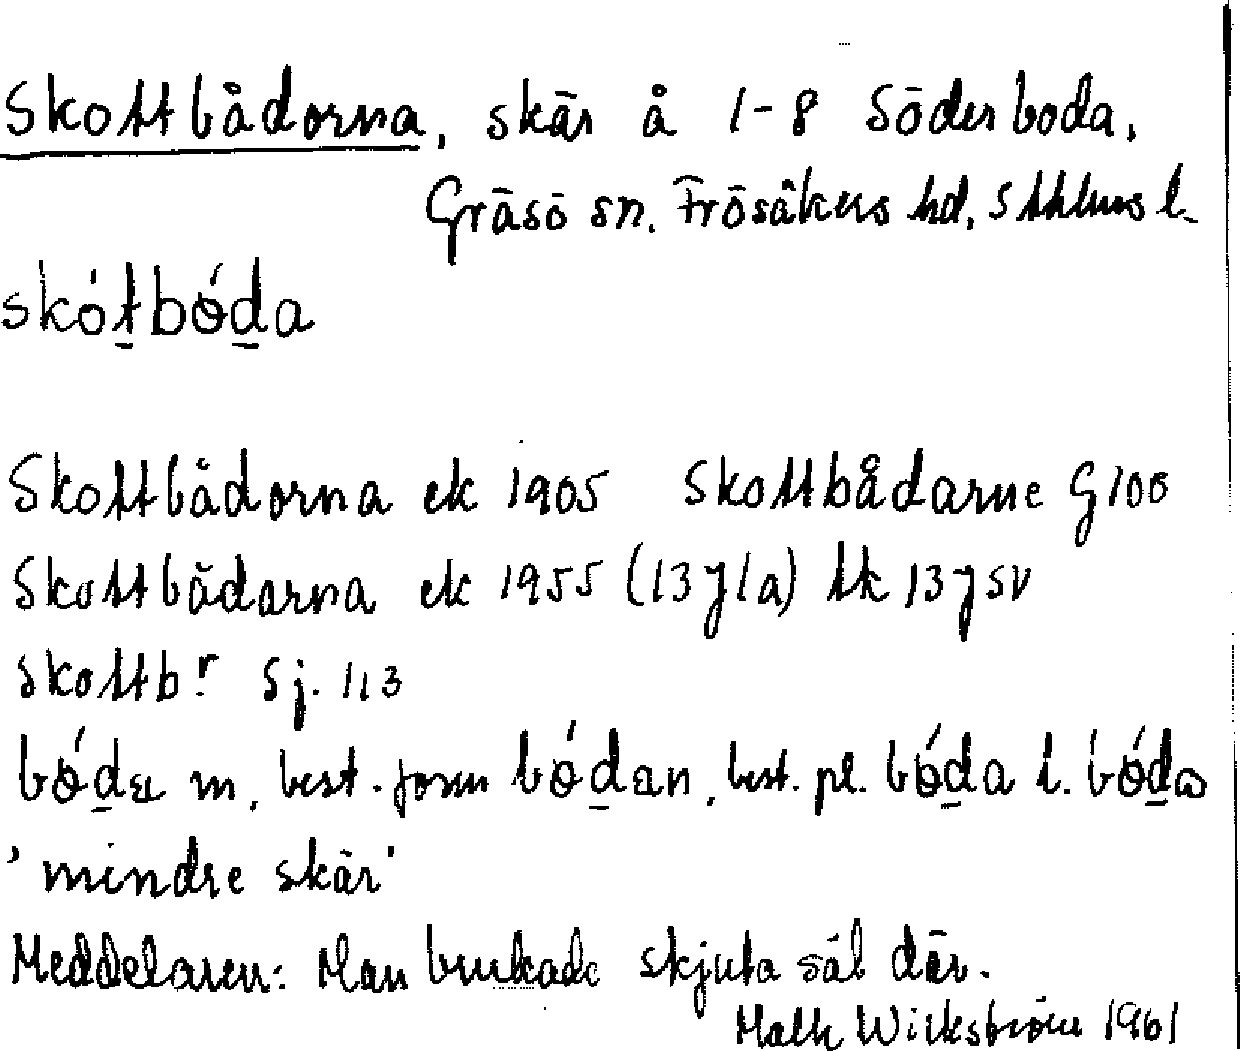 Skottbådorna, skär å 1-8 Söderboda,
Gräsö sn. Frösåkers hd, Sthlms l.
skótbóda
Skottbådorna ek 1905 Skottbådarne G 100
Skottbådarna ek 1955 (13 J 1 a) tk 13 J SV
Skottb:r Sj. 113
m, best. form bódan, best. pl. bóda l.
'mindre skär'
Meddelaren: Man brukade skjuta säl där.
Wikström 1961